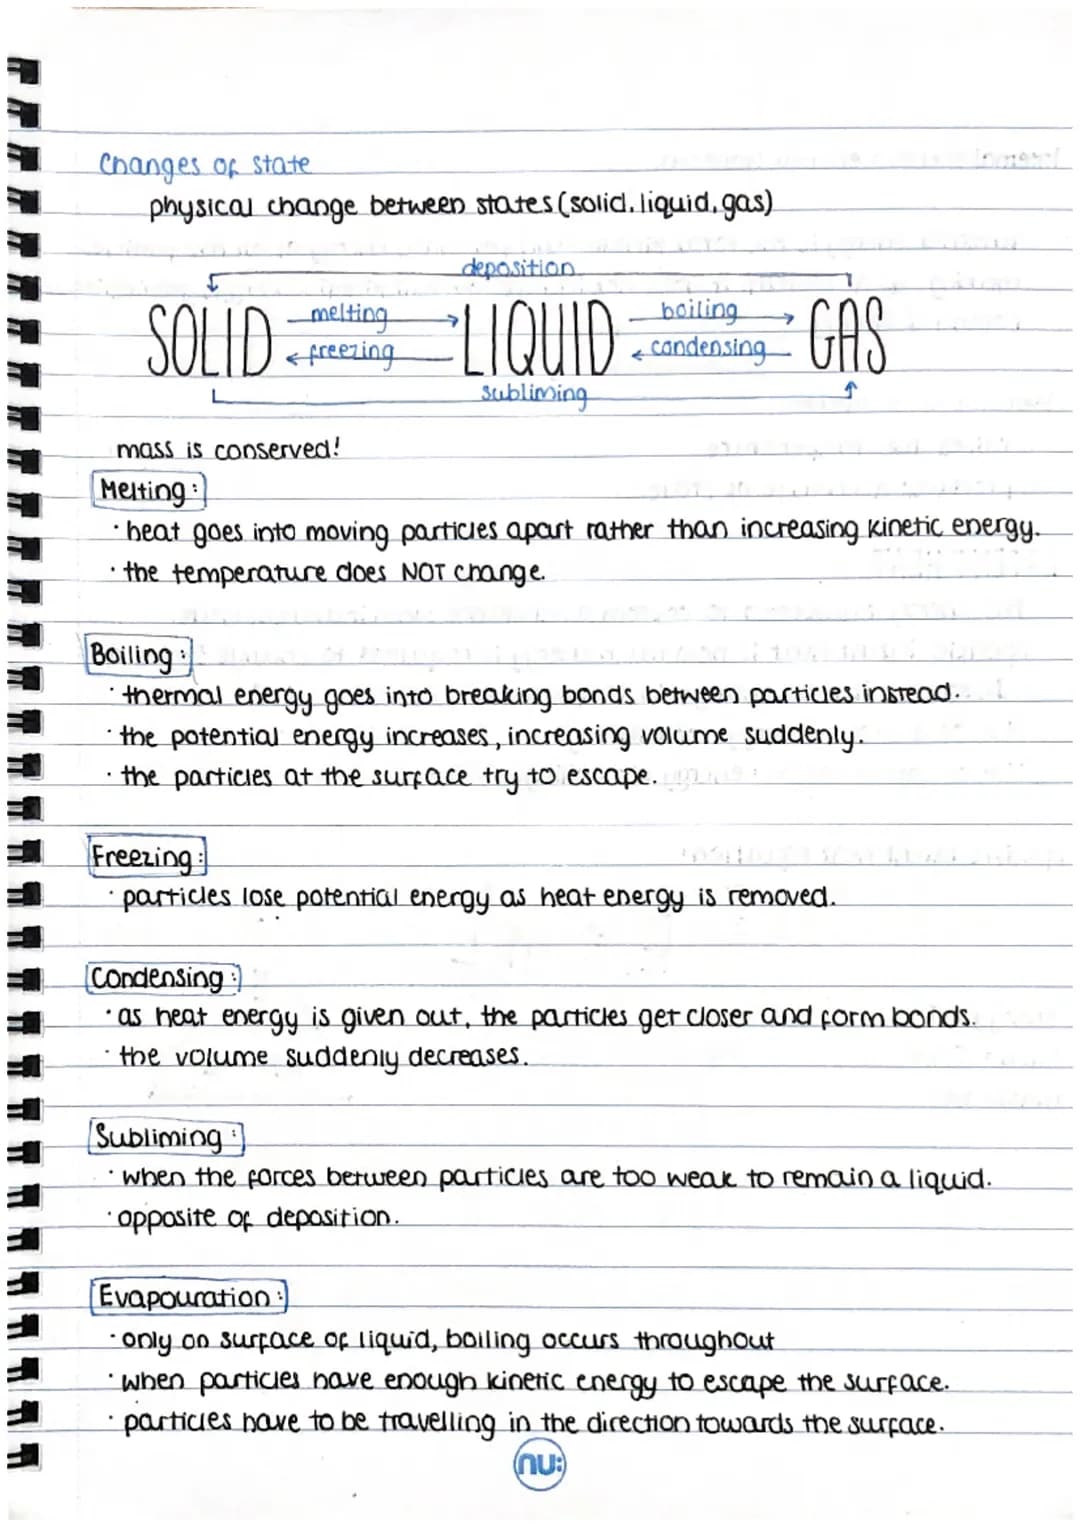 Changes of state
physical change between states (solid, liquid, gas)
deposition
SOLID melting LIQUID boiling GAS
freezing condensing
subliming
mass is conserved!
Melting:
· heat goes into moving particles apart rather than increasing kinetic energy.
· the temperature does NOT change.
Boiling:
· thermal energy goes into breaking bonds between particles instead.
· the potential energy increases, increasing volume suddenly.
· the particles at the surface try to escape.
Freezing:
· particles lose potential energy as heat energy is removed.
Condensing:
· as heat energy is given out, the particles get closer and form bonds.
· the volume suddenly decreases.
Subliming:
· when the forces between particles are too weak to remain a liquid.
· opposite of deposition.
Evapouration:
· only on surface of liquid, boiling occurs throughout
· when particles have enough kinetic energy to escape the surface.
· particles have to be travelling in the direction towards the surface.
nu: